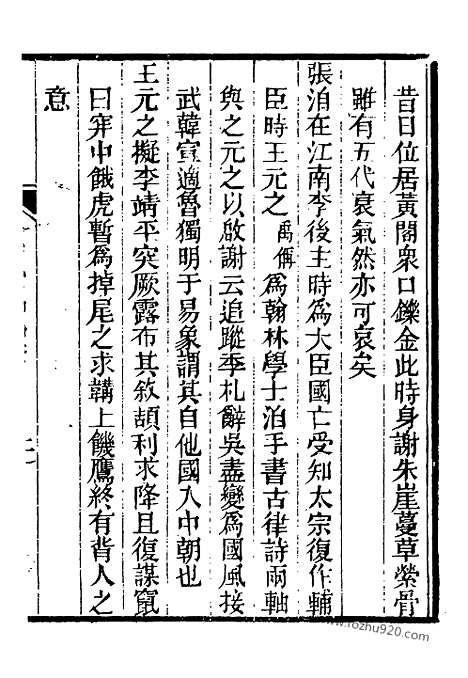 昔日位居黃閣衆口鑠金此時身謝朱崖蔓草縈骨
雖有五代衰氣然亦可哀矣
張洎在江南李後主時爲大臣國亡受知太宗復作輔
臣時王元之禹偁爲翰林學士洎手書古律詩兩軸
與之元之以啟謝云追蹤季札辭吳盡變爲國風接
武韓宣適魯獨明于易象謂其自他國入中朝也
王元之擬李靖平突厥露布其敘頡利求降且復謀竄
曰穽中餓虎暫爲掉尾之求韝上饑鷹終有背人之
意
www.rozhu920.com